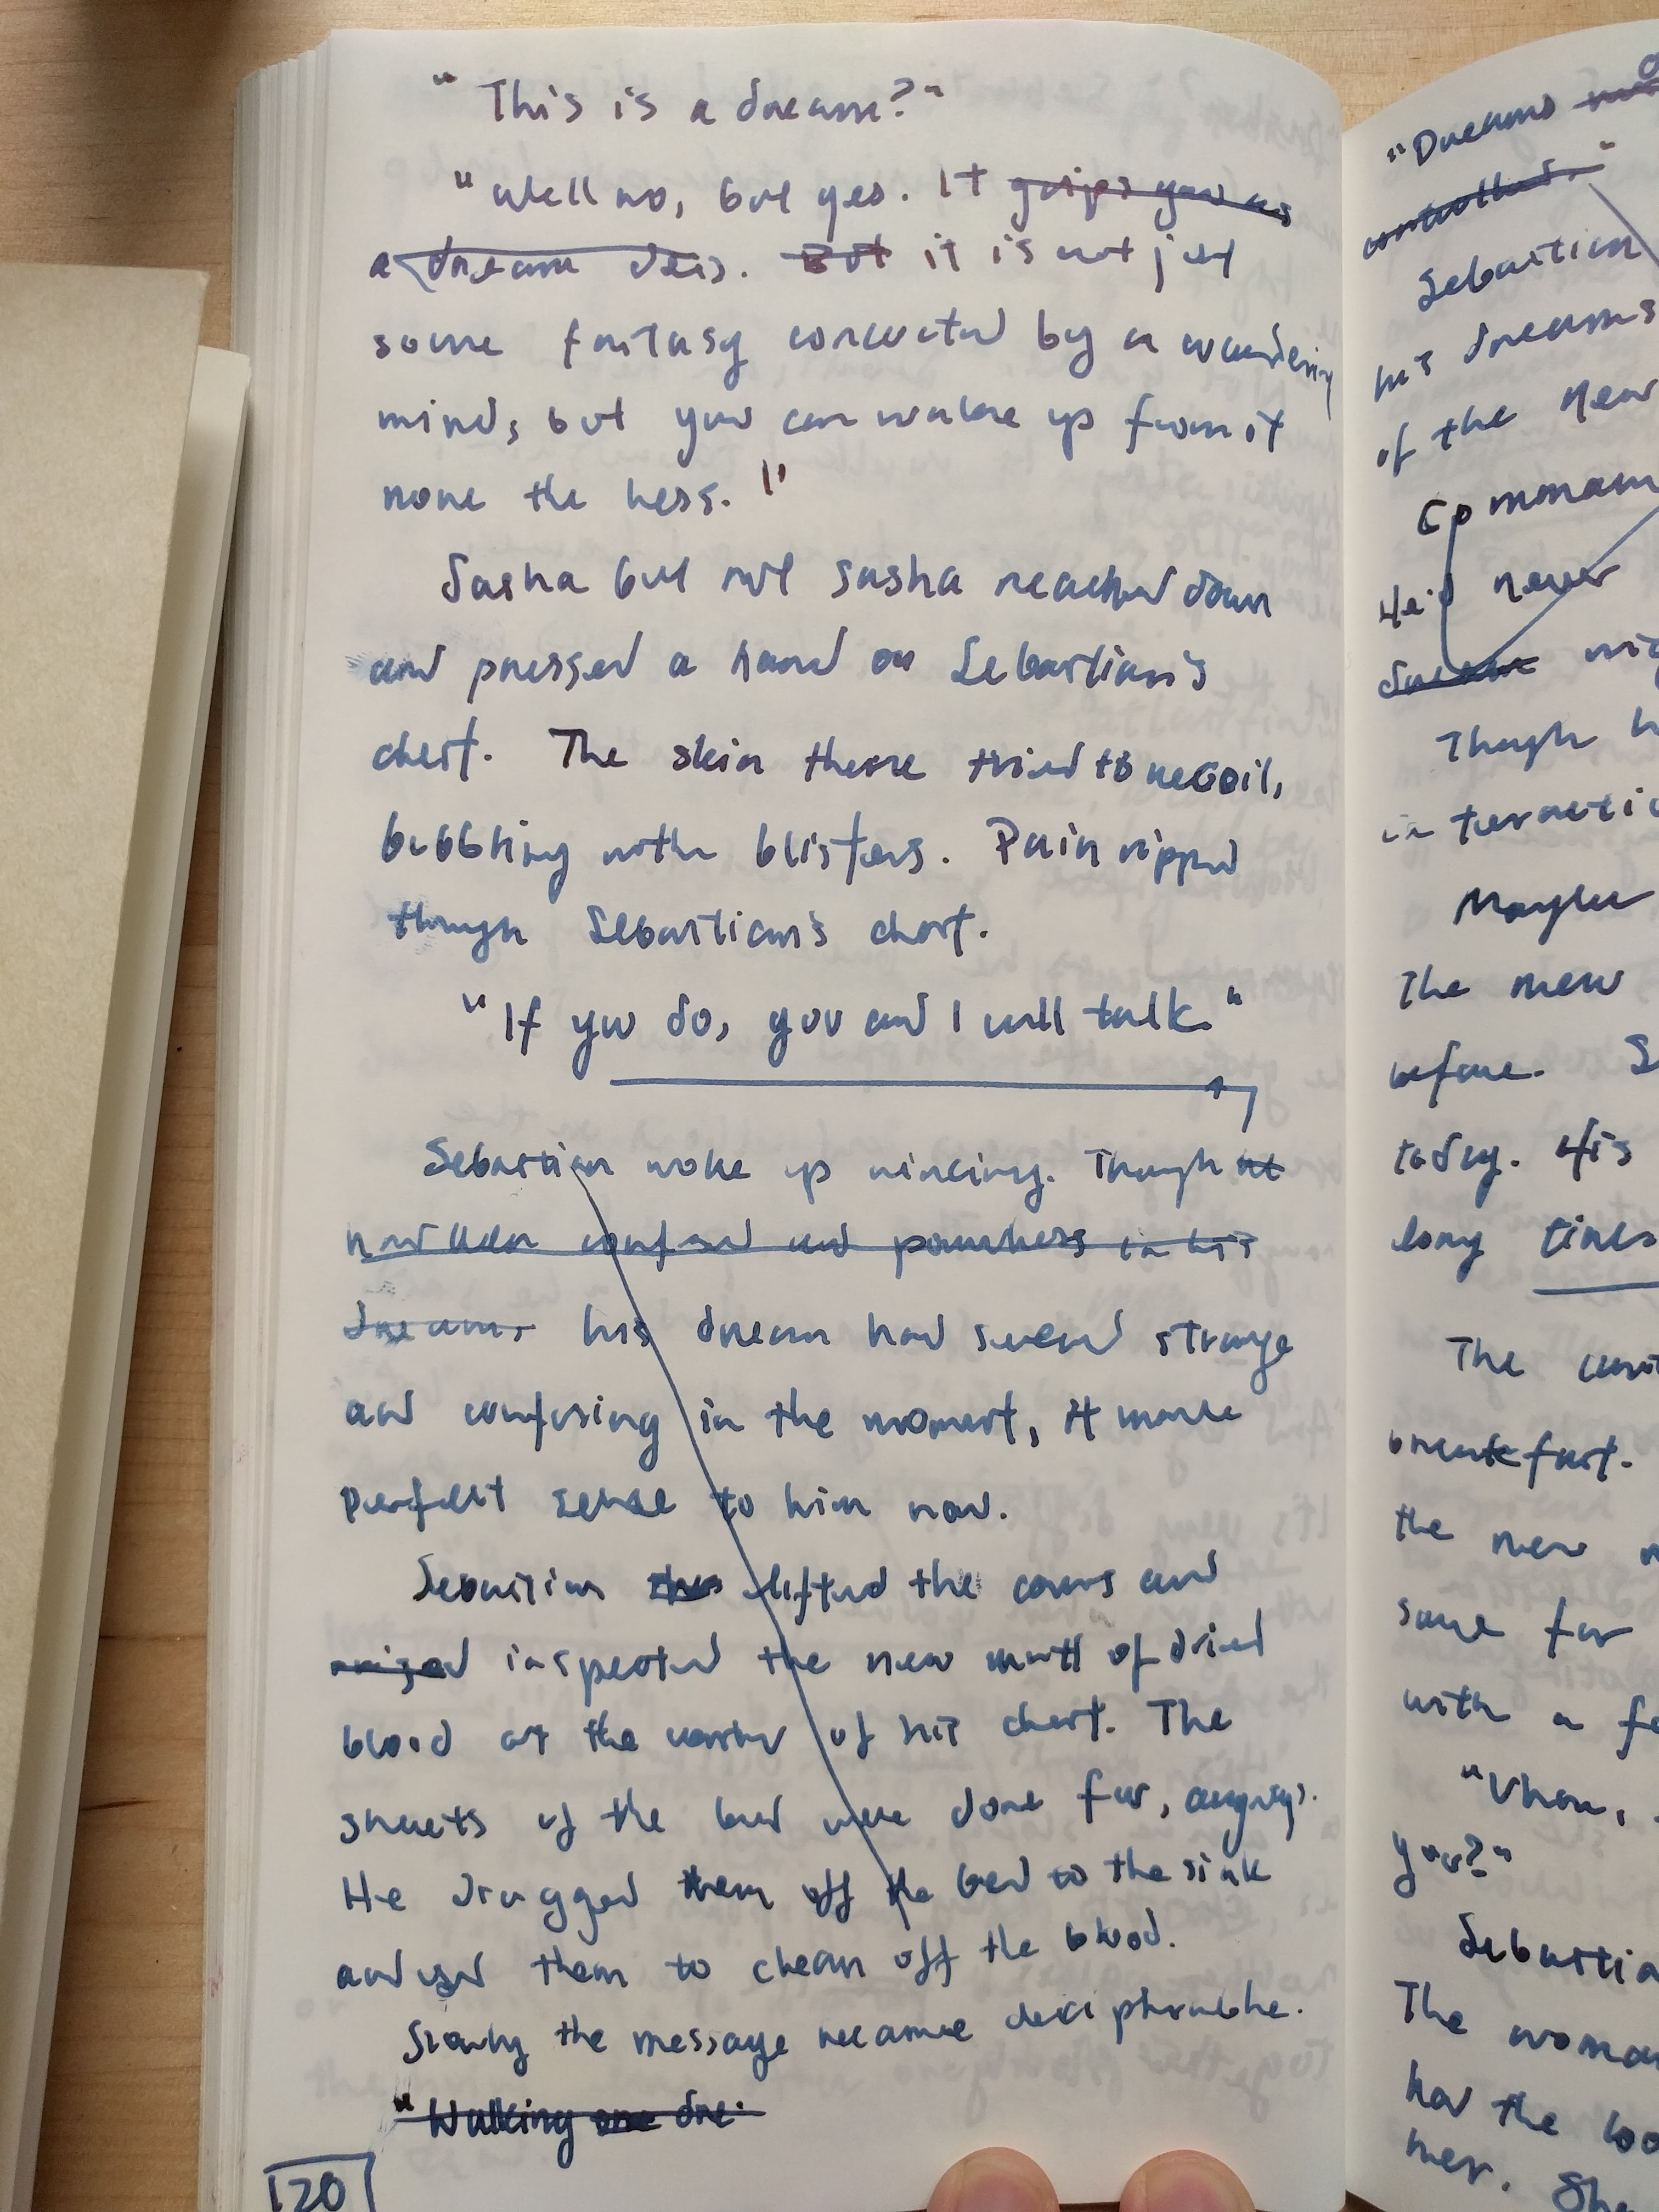 "This is a dream?"
"Well no, but yes. It grips you as
a dream does. But it is not just
some fantasy concocted by a wandering
mind, but you can wake up from it
none the less."
Sasha but not Sasha reached down
and pressed a hand on Sebastian's
chest. The skin there tried to recoil,
bubbling with blisters. Pain ripped
though Sebastian's chest.
"If you do, you and I will talk."
Sebastian woke up wincing. Though
had been confused and powerless in his
dream, his dream had seemed strange
and confusing in the moment, it made
perfect sense to him now.
Sebastian lifted the covers and
inspected the new of dried
blood at the center of his chest. The
sheets of the bed were done for, anyways.
He dragged them off the bed to the sink
and used them to clean off the blood.
Slowly the message became decipherable.
"Walking one dre.
120
"Dreams
controlled."
Sebastian
his dreams
of the
Command
He'd never
dream
Though h
interactio
Maybe
The new
before. S
today. His
long times
The
breakfast.
the new
same for
with a fe
you?"
Sebastia
The woman
had the loo
her. She